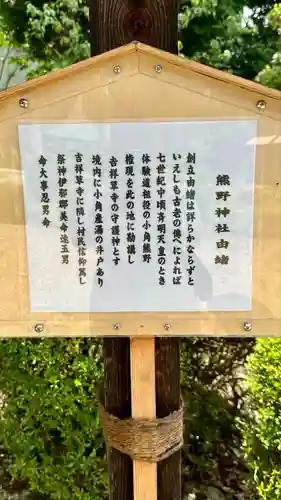 熊野神社由緒
創立由緒は詳らかならずと
いえしも古老の傳へによれば
七世紀中頃斉明天皇のとき
修験道祖役の小角熊野
権現を此の地に勧請し
吉祥草寺の守護神とす
境内に小角産湯の井戸あり
吉祥草寺に隣し村民信仰篤し
祭神伊邪那美命速玉男
命大事忍男命